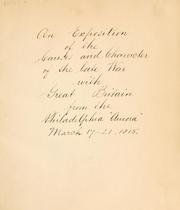 An Exposition
of the
Causes and Character
of the late War
with
Great Britain
from the
Philadelphia "Aurora"
March 17-21. 1815.